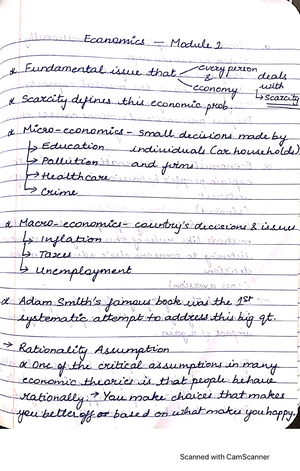 Economics — Module 1
* Fundamental issue that every person & economy deals with → Scarcity
* Scarcity defines this economic prob.
* Micro-economics - small decisions made by
↳ Education individuals (or households)
↳ Pollution and firms
↳ Healthcare
↳ Crime
* Macro-economics - country's decisions & issues
↳ Inflation
↳ Taxes
↳ Unemployment
* Adam Smith's famous book was the 1st
systematic attempt to address this big qt.
→ Rationality Assumption
* One of the critical assumptions in many
economic theories is that people behave
rationally. → You make choices that makes
you better off or based on what makes you happy.
Scanned with CamScanner